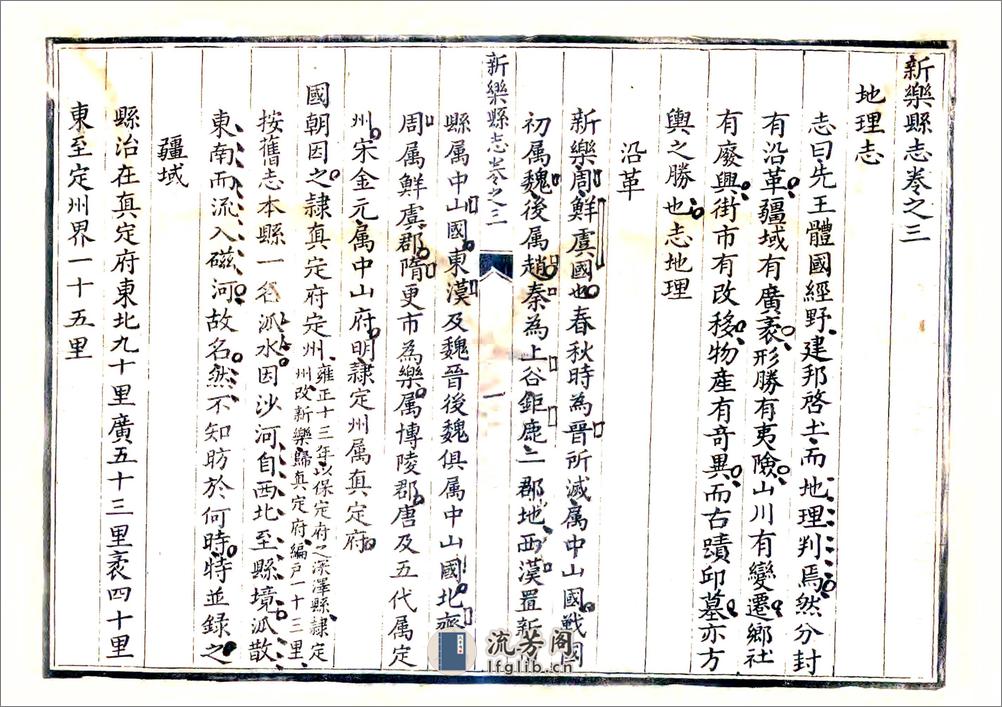 新樂縣志卷之三
地理志
志曰先王體國經野建邦啓土而地理判焉然分封
有沿革疆域有廣袤形勝有夷險山川有變遷鄉社
有廢興街市有改移物產有奇異而古蹟邱墓亦方
輿之勝也志地理
沿革
新樂周鮮虞國也春秋時為晉所滅属中山國戰國
初属魏後属趙秦為上谷鉅鹿二郡地西漢置新
新樂縣志卷之三
一
縣属中山國東漢及魏晉後魏俱属中山國北齊
周属鮮虞郡隋更市為樂属博陵郡唐及五代属定
州宋金元属中山府明隷定州属真定府
國朝因之隷真定府定州雍正十三年以保定府之深澤縣隷定
州改新樂歸真定府編戶一十三里
按舊志本縣一名派水因沙河自西北至縣境派散
東南而流入磁河故名然不知昉於何時特並錄之
疆域
縣治在真定府東北九十里廣五十三里袤四十里
東至定州界一十五里
流芳阁
lfglib.cn